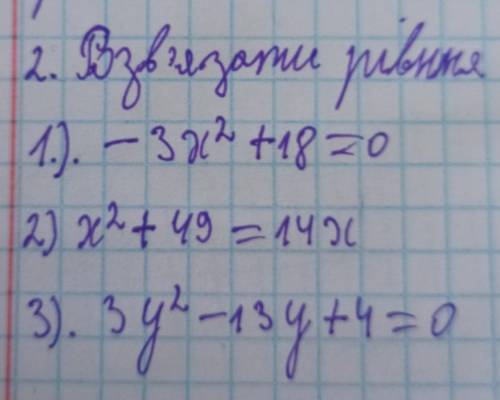 2. Взв'язати рівння
1.). - 3x² + 18 = 0
2) x² + 49 = 14x
3). 3y² - 13y + 4 = 0